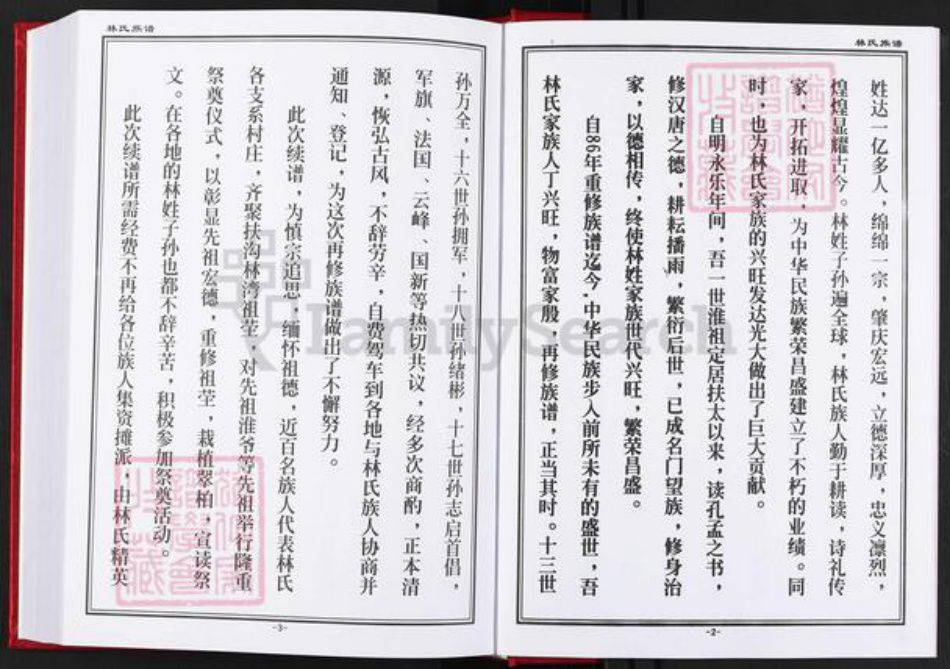 林氏族谱
姓达一亿多人，绵绵一宗，肇庆宏远，立德深厚，忠义凛烈，
煌煌显耀古今。林姓子孙遍全球，林氏族人勤于耕读，诗礼传
家，开拓进取，为中华民族繁荣昌盛建立了不朽的业绩。同
时，也为林氏家族的兴旺发达光大做出了巨大贡献。
自明永乐年间，吾一世淮祖定居扶太以来，读孔孟之书，
修汉唐之德，耕耘播雨，繁衍后世，已成名门望族，修身治
家，以德相传，终使林姓家族世代兴旺，繁荣昌盛。
自86年重修族谱迄今，中华民族步入前所未有的盛世，吾
林氏家族人丁兴旺，物富家殷，再修族谱，正当其时。十三世
-2-
林氏族谱
孙万全，十六世孙拥军，十八世孙绪彬，十七世孙志启首倡，
军旗、法国、云峰、国新等热切共议，经多次商酌，正本清
源，恢弘古风，不辞劳辛，自费驾车到各地与林氏族人协商并
通知、登记，为这次再修族谱做出了不懈努力。
此次续谱，为慎宗追思，缅怀祖德，近百名族人代表林氏
各支系村庄，齐聚扶沟林湾祖茔，对先祖淮爷等先祖举行隆重
祭奠仪式，以彰显先祖宏德，重修祖茔，栽植翠柏，宣读祭
文。在各地的林姓子孙也都不辞辛苦，积极参加祭奠活动。
此次续谱所需经费不再给各位族人集资摊派，由林氏精英
-3-
FamilySearch